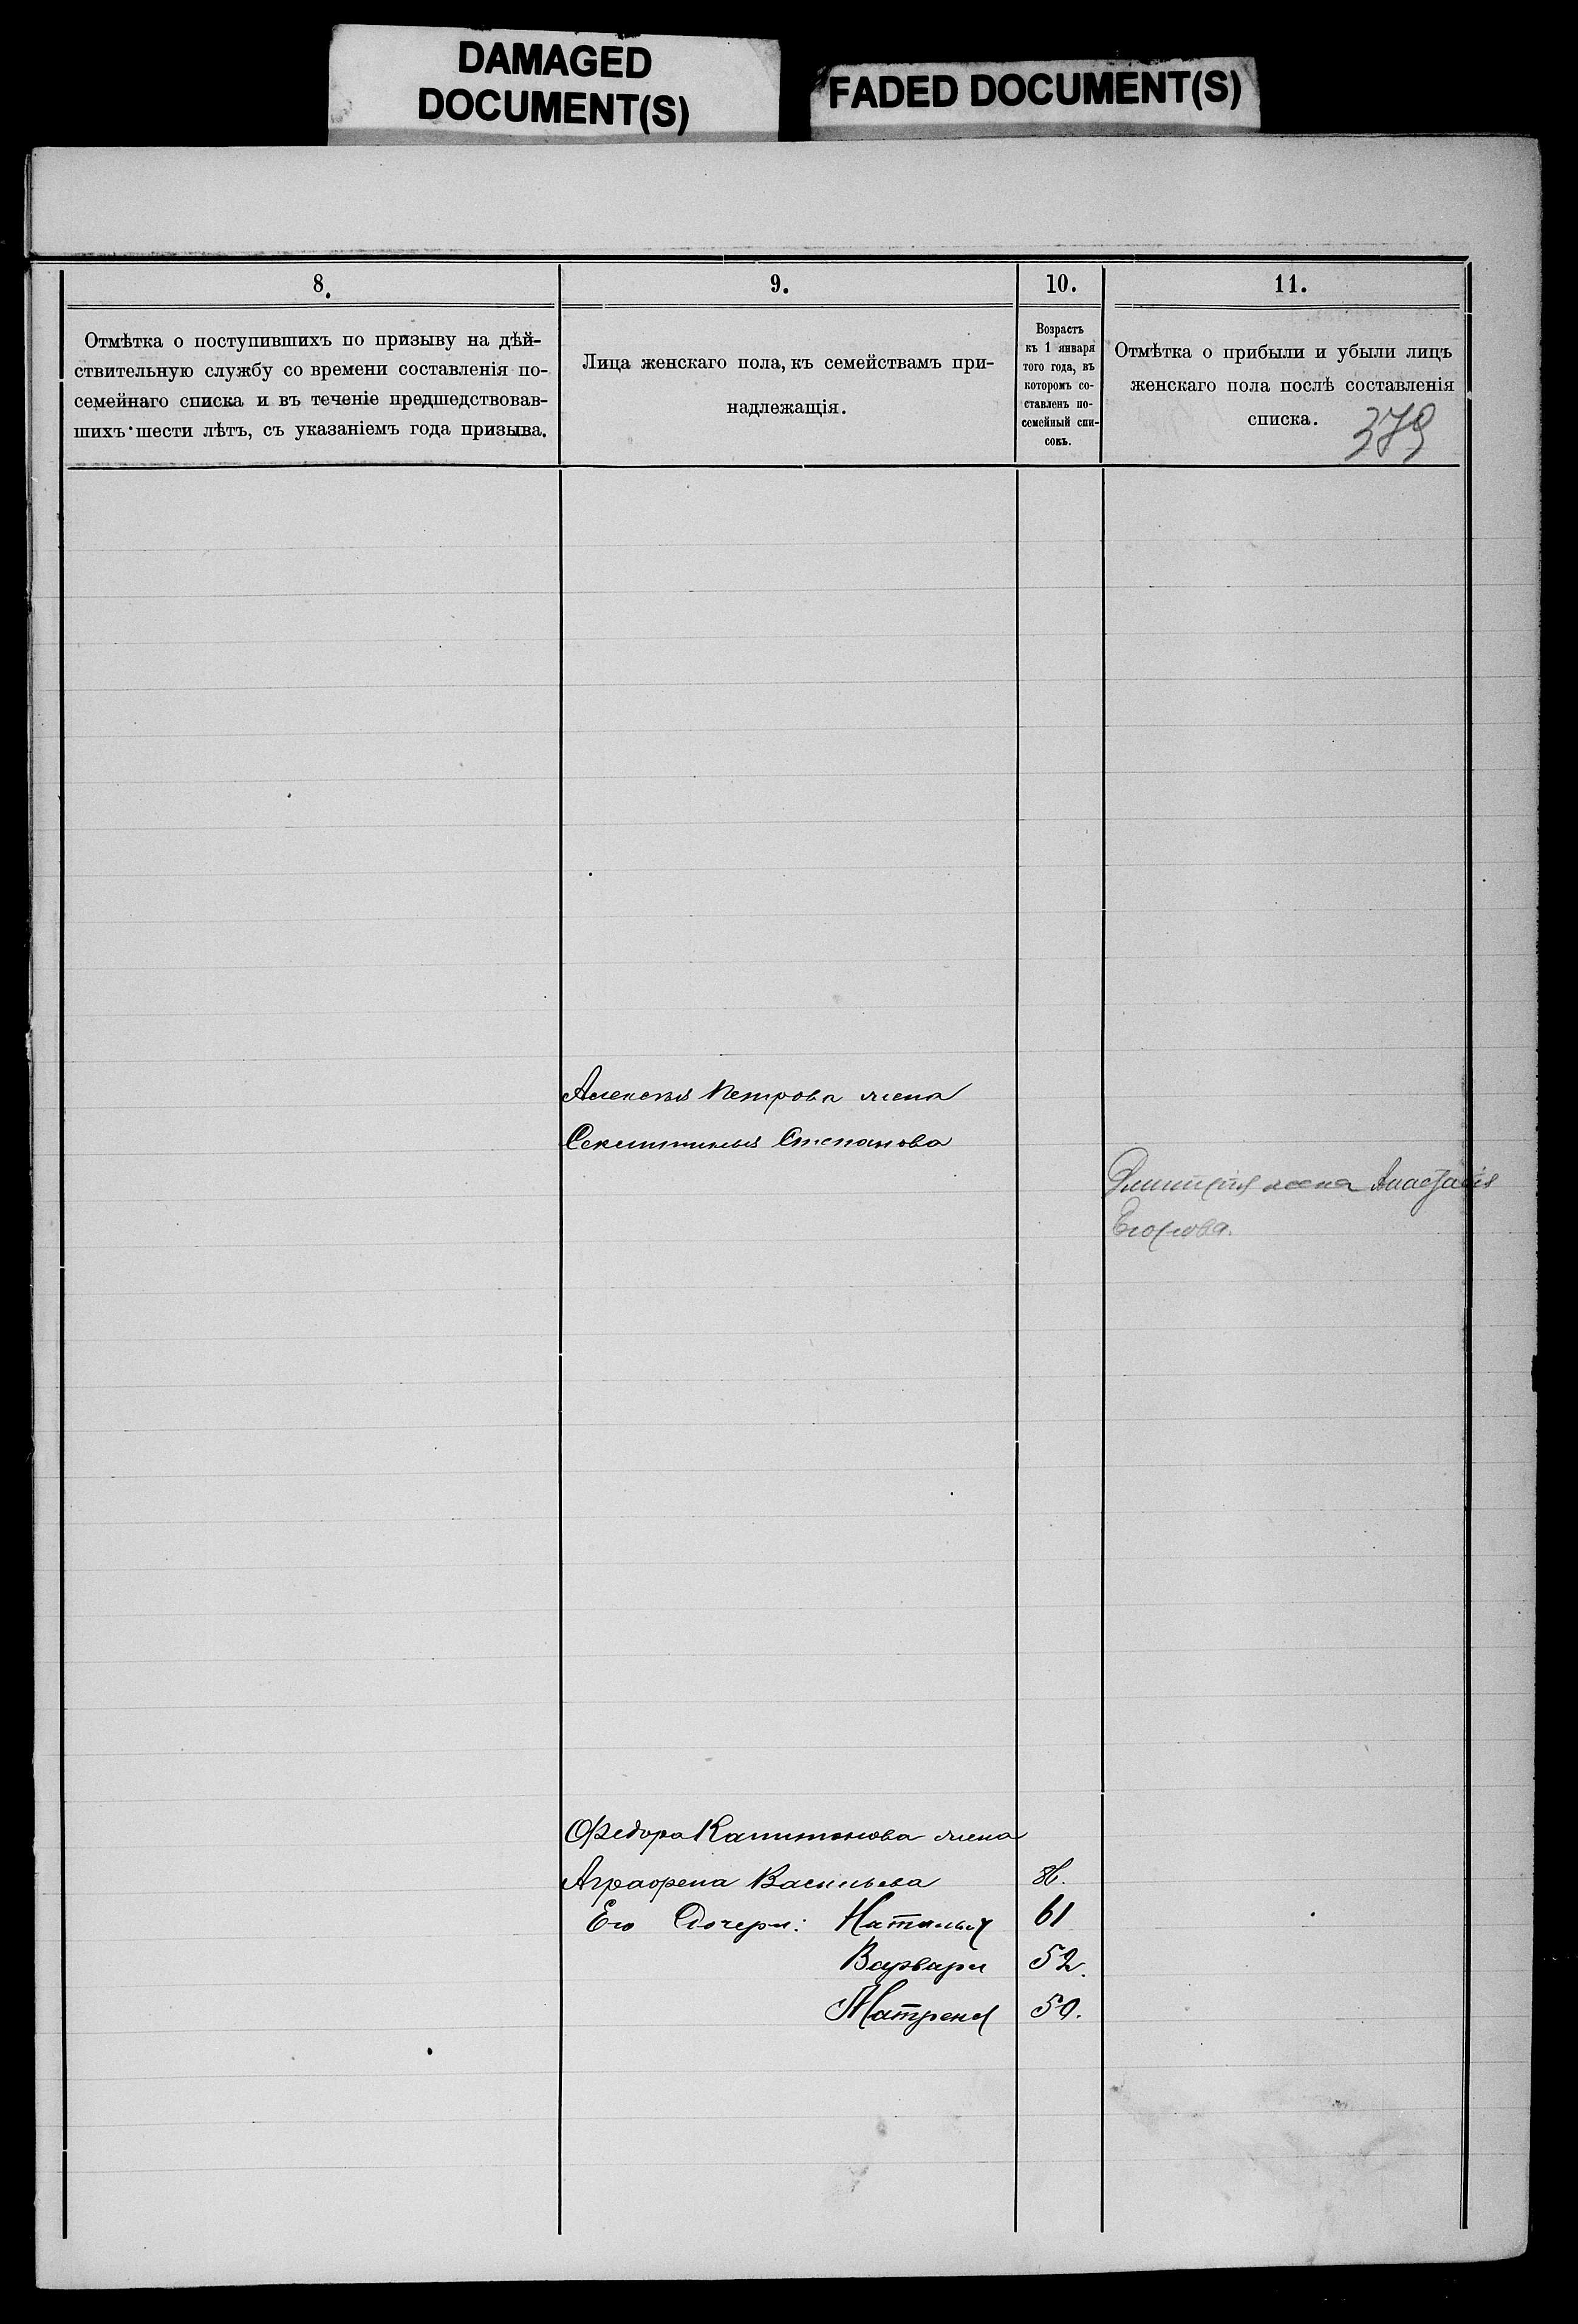 DAMAGED
DOCUMENT(S)
FADED DOCUMENT(S)
8.
9.
10.
11.
Отмѣтка о поступившихъ по призыву на дѣй-
ствительную службу со времени составленія по-
семейнаго списка и въ теченіе предшедствовав-
шихъ шести лѣтъ, съ указаніемъ года призыва.
Лица женскаго пола, къ семействамъ при-
надлежащія.
Возрастъ
къ 1 января
того года, въ
которомъ со-
ставленъ по-
семейный спи-
сокъ.
Отмѣтка о прибыли и убыли лицъ
женскаго пола послѣ составленія
списка.
379
Алексѣя Петрова жена
Степанова
Дмитрія жена Анастасія
Егорова.
Федора Капитонова жена
Аграфена Васильева
Его Дочери: Наталья 61
Варвара 52.
Матрена 50.